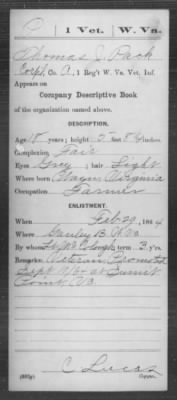 C | 1 Vet. | W. Va.
Thomas J. Pack
Corpl, Co. A, 1 Reg't W. Va. Vet. Inf.
Appears on
Company Descriptive Book
of the organization named above.
DESCRIPTION.
Age 18 years; height 5 feet 8 inches
Complexion Fair
Eyes Grey; hair Light
Where born Wayne Virginia
Occupation Farmer
ENLISTMENT.
When Feb 29, 1864
Where Gauley B. W Va
By whom term 3 y'rs.
Remarks: Veteran Promoted
Sept at Summit
Point, Va
C. Lucas
Copyist.